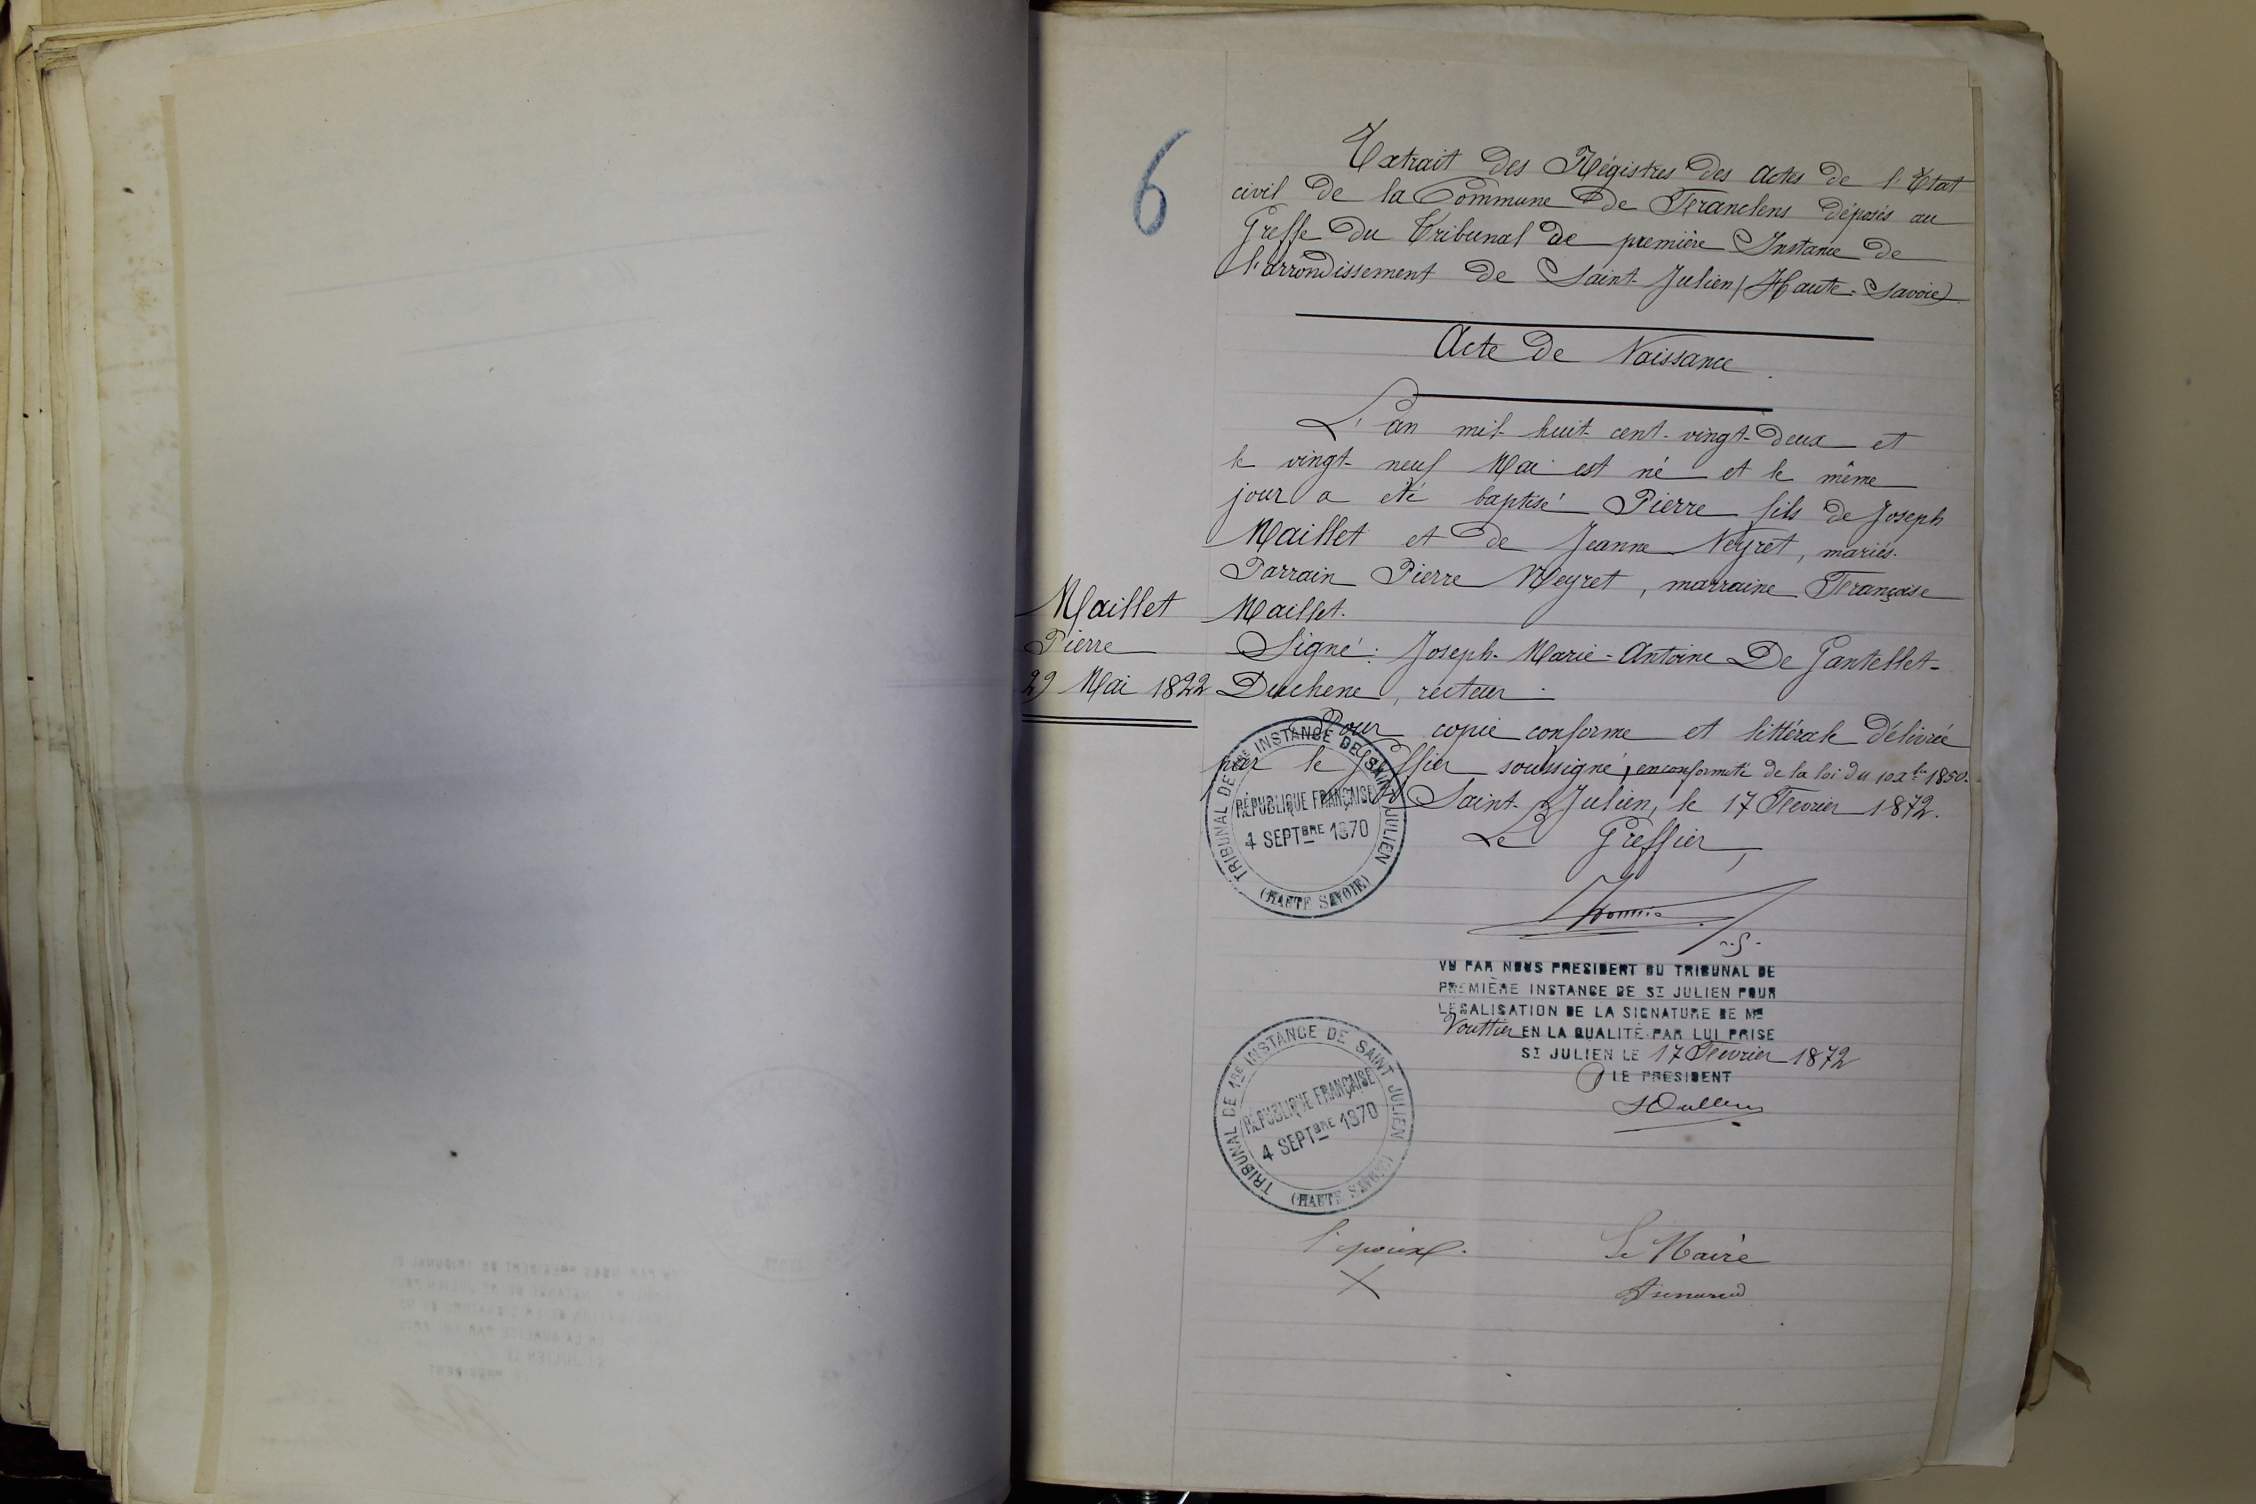 6
Extrait des Régistres des Actes de l'Etat
civil de la Commune de Franclens déposés au
Greffe du Tribunal de première Instance de
l'arrondissement de Saint-Julien (Haute-Savoie)
Acte de Naissance.
L'an mil huit cent vingt-deux et
le vingt-neuf Mai est né et le même
jour a été baptisé Pierre fils de Joseph
Maillet et de Jeanne Neyret, mariés.
Parrain Pierre Neyret, marraine Françoise
Maillet.
Maillet
Pierre
29 Mai 1822
Signé: Joseph-Marie-Antoine De Gantellet-
Duchene, recteur.
Pour copie conforme et littérale délivrée
par le Greffier soussigné, en conformité de la loi du 10 xbre 1850.
Saint-Julien, le 17 Fevrier 1872.
Le Greffier,
TRIBUNAL DE 1RE INSTANCE DE SAINT JULIEN
RÉPUBLIQUE FRANÇAISE
4 SEPTBRE 1870
(HAUTE SAVOIE)
VU PAR NOUS PRESIDENT DU TRIBUNAL DE
PREMIÈRE INSTANCE DE ST JULIEN POUR
LEGALISATION DE LA SIGNATURE DE ME
Vouttier EN LA QUALITÉ PAR LUI PRISE
ST JULIEN LE 17 Fevrier 1872
LE PRESIDENT
TRIBUNAL DE 1RE INSTANCE DE SAINT JULIEN
RÉPUBLIQUE FRANÇAISE
4 SEPTBRE 1870
(HAUTE SAVOIE)
l'époux.
X
Le Maire